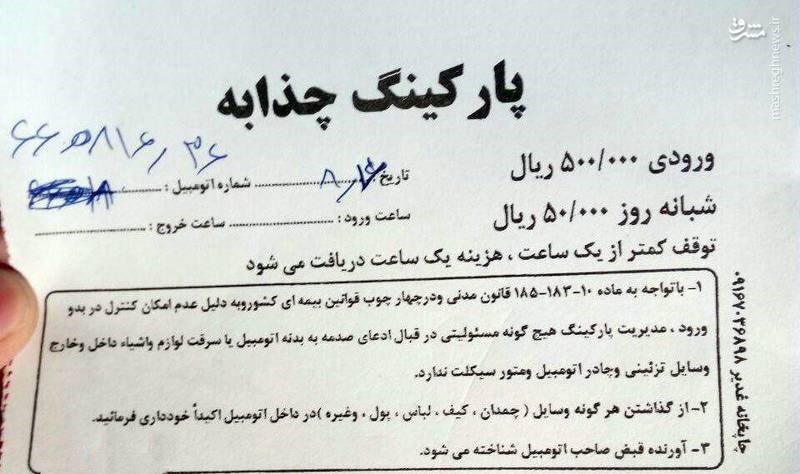 مشرق
mashreghnews.ir
پارکینگ چذابه
ورودی ۵۰۰/۰۰۰ ریال
تاریخ : ............ شماره اتومبیل : ............
شبانه روز ۵۰/۰۰۰ ریال
ساعت ورود : ............ ساعت خروج : ............
توقف کمتر از یک ساعت ، هزینه یک ساعت دریافت می شود
۱- باتواجه به ماده ۱۰-۱۸۳-۱۸۵ قانون مدنی ودرچهار چوب قوانین بیمه ای کشوروبه دلیل عدم امکان کنترل در بدو
ورود ، مدیریت پارکینگ هیچ گونه مسئولیتی در قبال ادعای صدمه به بدنه اتومبیل یا سرقت لوازم واشیاء داخل وخارج
وسایل تزئینی وچادر اتومبیل ومتور سیکلت ندارد.
۲- از گذاشتن هر گونه وسایل ( چمدان ، کیف ، لباس ، پول ، وغیره )در داخل اتومبیل اکیداً خودداری فرمائید.
۳- آورنده قبض صاحب اتومبیل شناخته می شود.
چاپخانه غدیر ۰۹۱۶۷۰۳۶۸۹۸